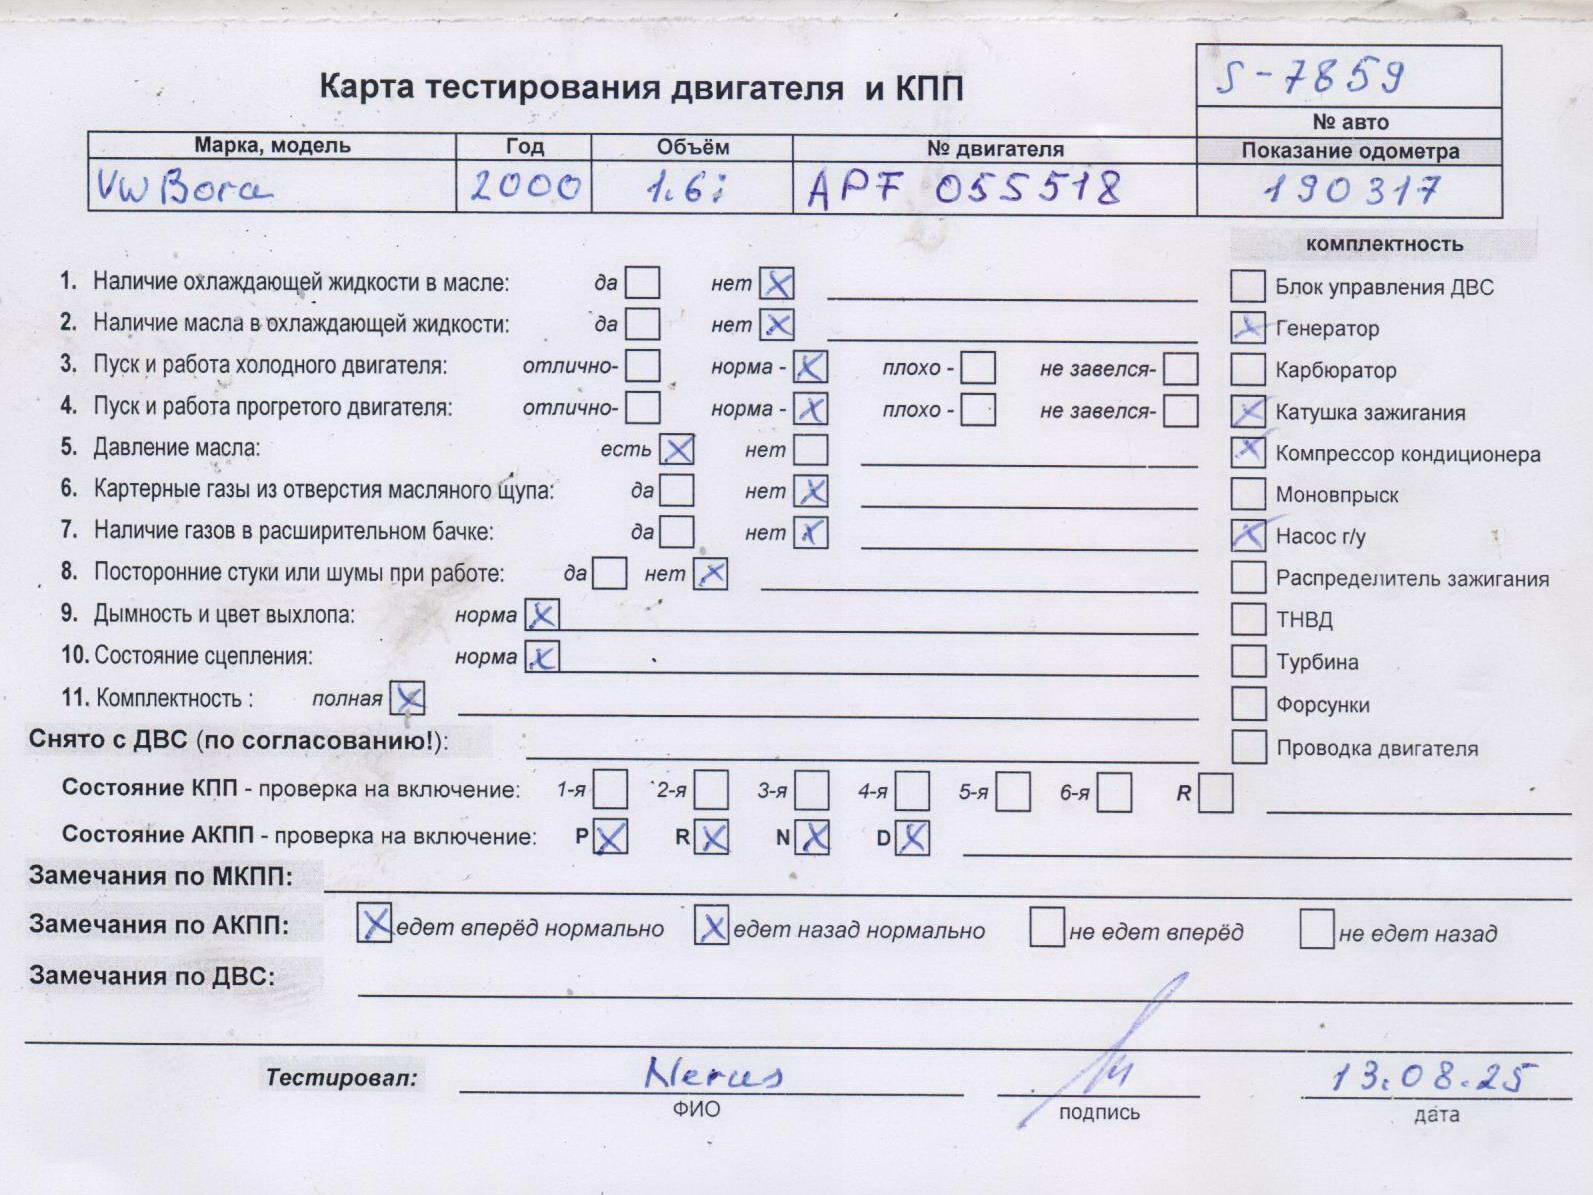 S-7859
Карта тестирования двигателя и КПП
№ авто
Марка, модель Год Объём № двигателя Показание одометра
VW Bora 2000 1.6i APF 055518 190317
комплектность
1. Наличие охлаждающей жидкости в масле: да нет X
Блок управления ДВС
2. Наличие масла в охлаждающей жидкости: да нет X
X Генератор
3. Пуск и работа холодного двигателя: отлично- норма - X плохо - не завелся-
Карбюратор
4. Пуск и работа прогретого двигателя: отлично- норма - X плохо - не завелся-
X Катушка зажигания
5. Давление масла: есть X нет
X Компрессор кондиционера
6. Картерные газы из отверстия масляного щупа: да нет X
Моновпрыск
7. Наличие газов в расширительном бачке: да нет X
X Насос г/у
8. Посторонние стуки или шумы при работе: да нет X
Распределитель зажигания
9. Дымность и цвет выхлопа: норма X
ТНВД
10. Состояние сцепления: норма X
Турбина
11. Комплектность : полная X
Форсунки
Снято с ДВС (по согласованию!):
Проводка двигателя
Состояние КПП - проверка на включение: 1-я 2-я 3-я 4-я 5-я 6-я R
Состояние АКПП - проверка на включение: P X R X N X D X
Замечания по МКПП:
Замечания по АКПП: X едет вперёд нормально X едет назад нормально не едет вперёд не едет назад
Замечания по ДВС:
Тестировал: Nerus 13.08.25
ФИО подпись дата